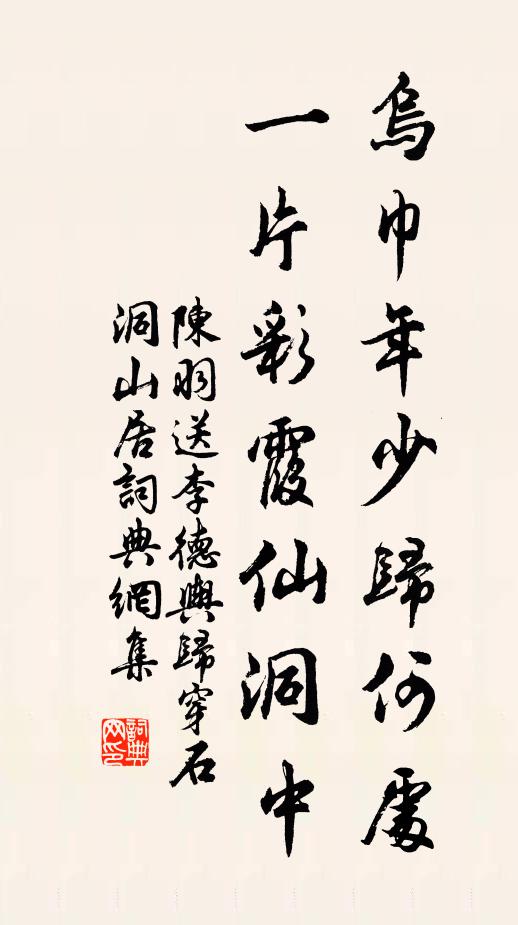 烏巾年少歸何處
一片彩霞仙洞中
陳羽送李德輿歸穿石
洞山居詞典網集
詞典
网印